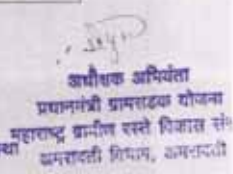 अधीक्षक अभियंता
प्रधानमंत्री ग्रामसडक योजना
महाराष्ट्र ग्रामीण रस्ते विकास सं
था अमरावती विभाग, अमरावती